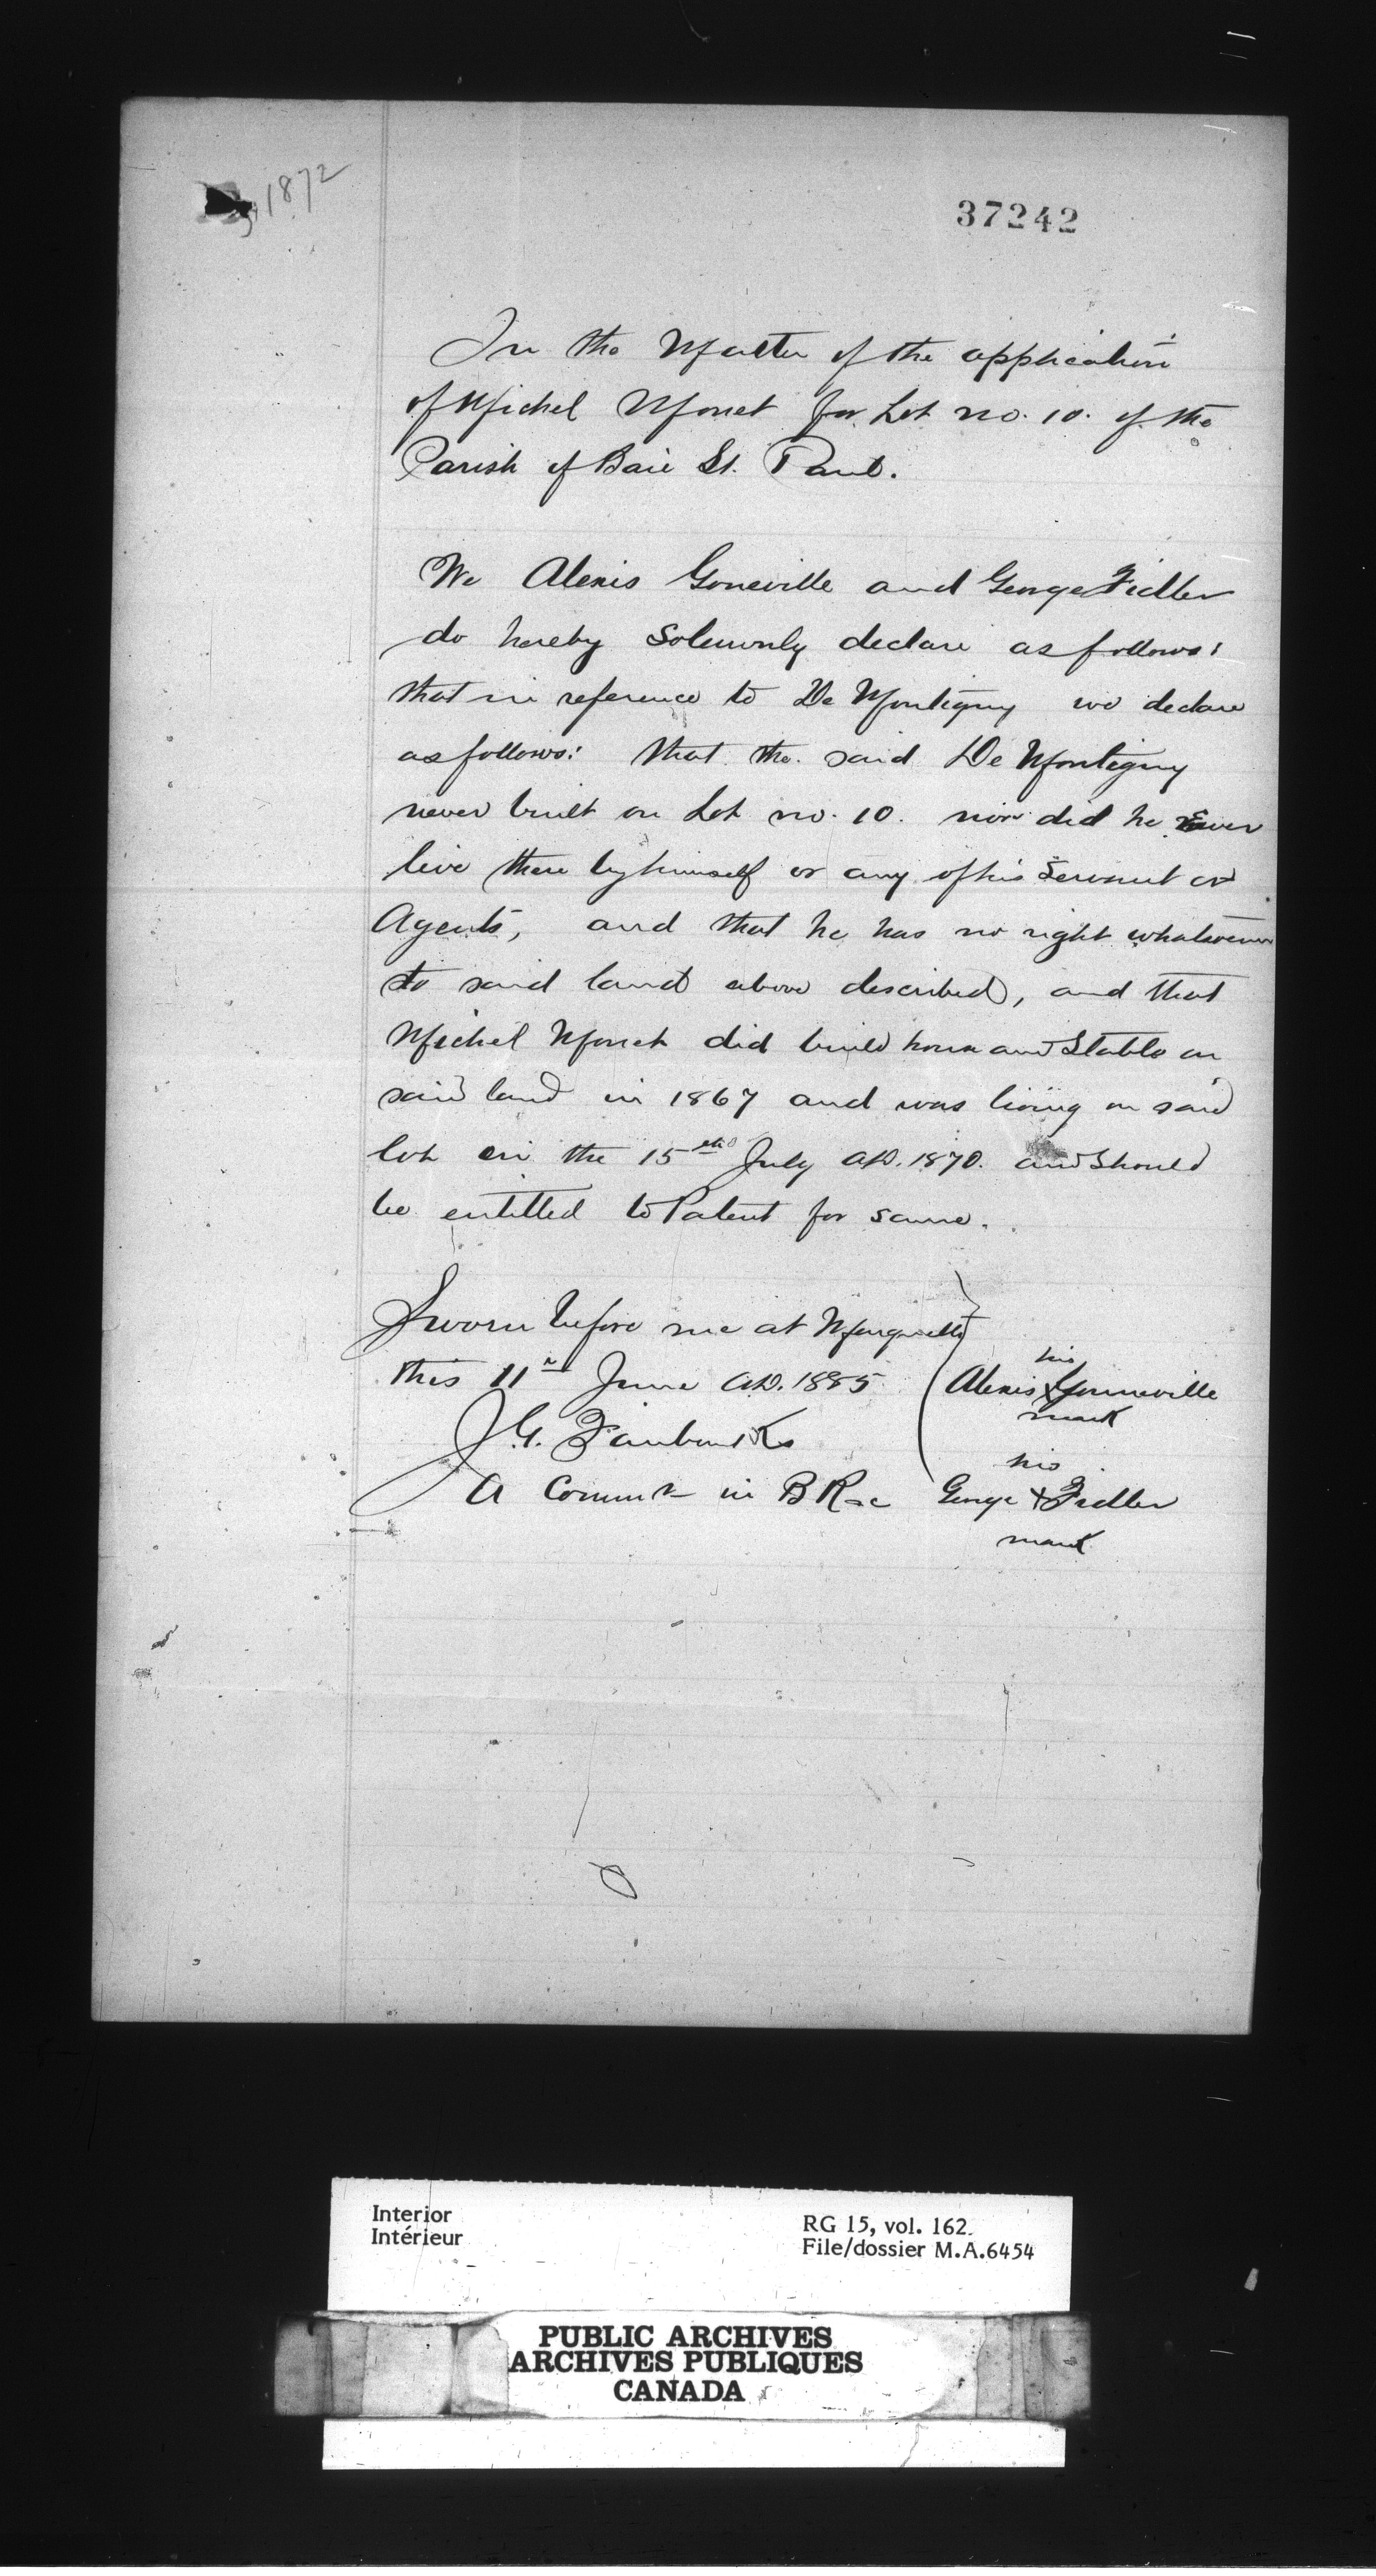 1872
37242
In the Matter of the application
of Michel Monet for Lot no. 10. of the
Parish of Baie St. Paul.
We Alexis Goneville and George Fidler
do hereby Solemnly declare as follows:
that in reference to De Montigny we declare
as follows: that the said De Montigny
never built on Lot no. 10. nor did he Ever
live there by himself or any of his Servant or
Agents, and that he has no right whatsoever
to said land above described, and that
Michel Monet did build house and Stable on
said land in 1867 and was living on said
lot on the 15th July A.D. 1870. and Should
be entitled to Patent for same.
Sworn before me at Marquette
this 11th June A.D. 1885
his
Alexis X Gonneville
mark
J.G. Fairbanks
his
A Commr in B R &c George X Fidler
mark
Interior
Intérieur
RG 15, vol. 162.
File/dossier M.A.6454
PUBLIC ARCHIVES
ARCHIVES PUBLIQUES
CANADA